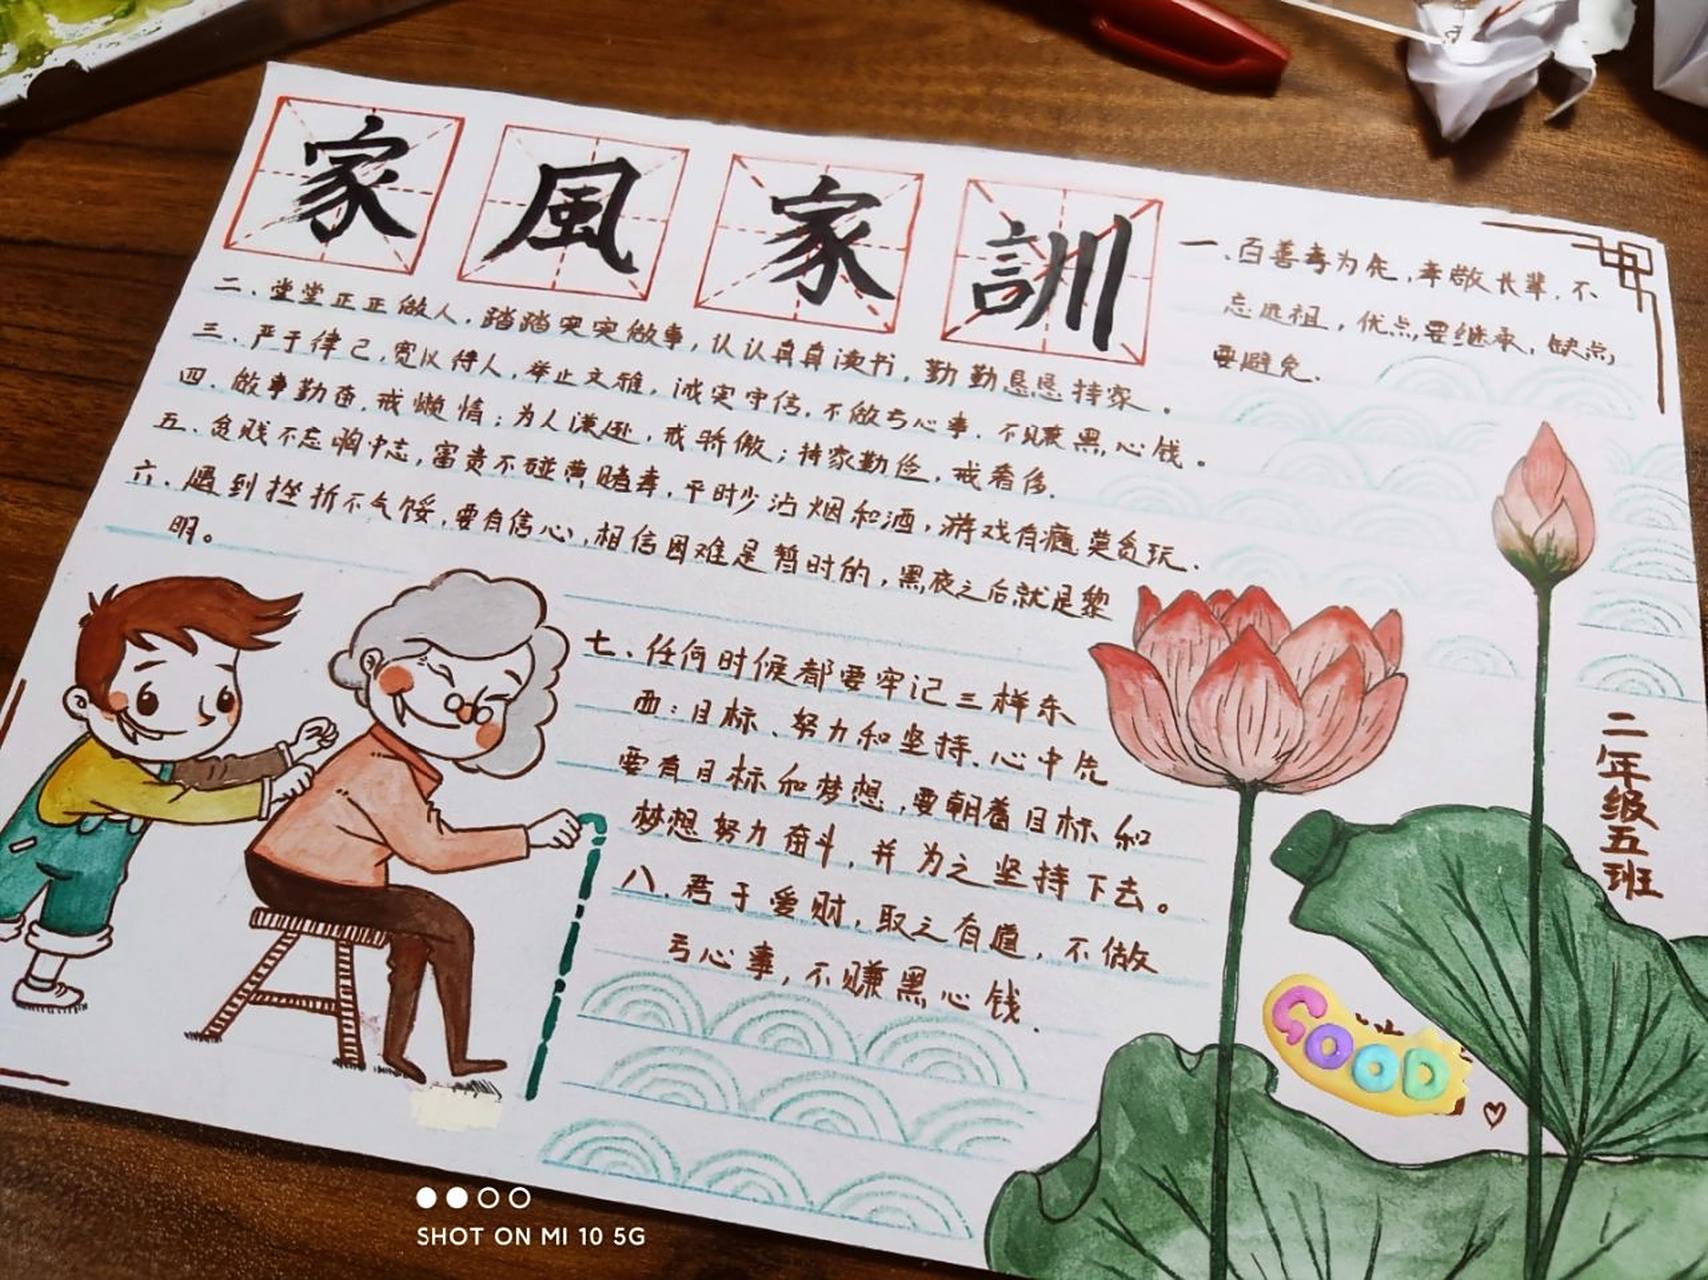 家風家訓
一、百善孝为先，孝敬长辈，不
忘远祖，优点要继承，缺点
要避免．
二、堂堂正正做人，踏踏实实做事，认认真真读书，勤勤恳恳持家．
三、严于律己，宽以待人，举止文雅，诚实守信，不做亏心事，不赚黑心钱。
四、做事勤奋，戒懒惰；为人谦逊，戒骄傲；持家勤俭，戒奢侈．
五、贫贱不忘胸中志，富贵不碰黄赌毒，平时少沾烟和酒，游戏有瘾莫贪玩．
六、遇到挫折不气馁，要有信心，相信困难是暂时的，黑夜之后就是黎
明。
七、任何时候都要牢记三样东
西：目标、努力和坚持，心中先
要有目标和梦想，要朝着目标和
梦想努力奋斗，并为之坚持下去。
八、君于爱财，取之有道，不做
亏心事，不赚黑心钱．
二年级五班
GOOD
SHOT ON MI 10 5G